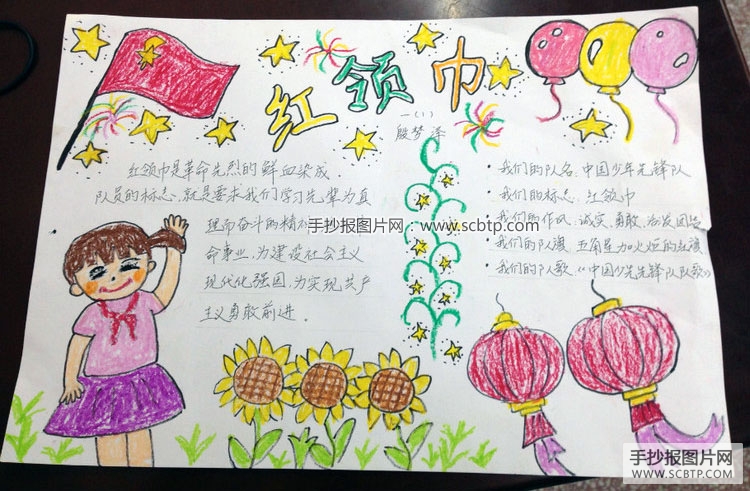 红领巾
一(1)
殷梦泽
红领巾是革命先烈的鲜血染成,
队员的标志,就是要求我们学习先辈为真
理而奋斗的精
命事业,为建设社会主义
现代化强国,为实现共产
主义勇敢前进。
·我们的队名:中国少年先锋队
·我们的标志:红领巾
·我们的作风:诚实,勇敢,活泼团结
·我们的队旗:五角星加火炬的红旗
·我们的队歌:《中国少先锋队队歌》
手抄报图片网:www.scbtp.com
手抄报图片网
WWW.SCBTP.COM